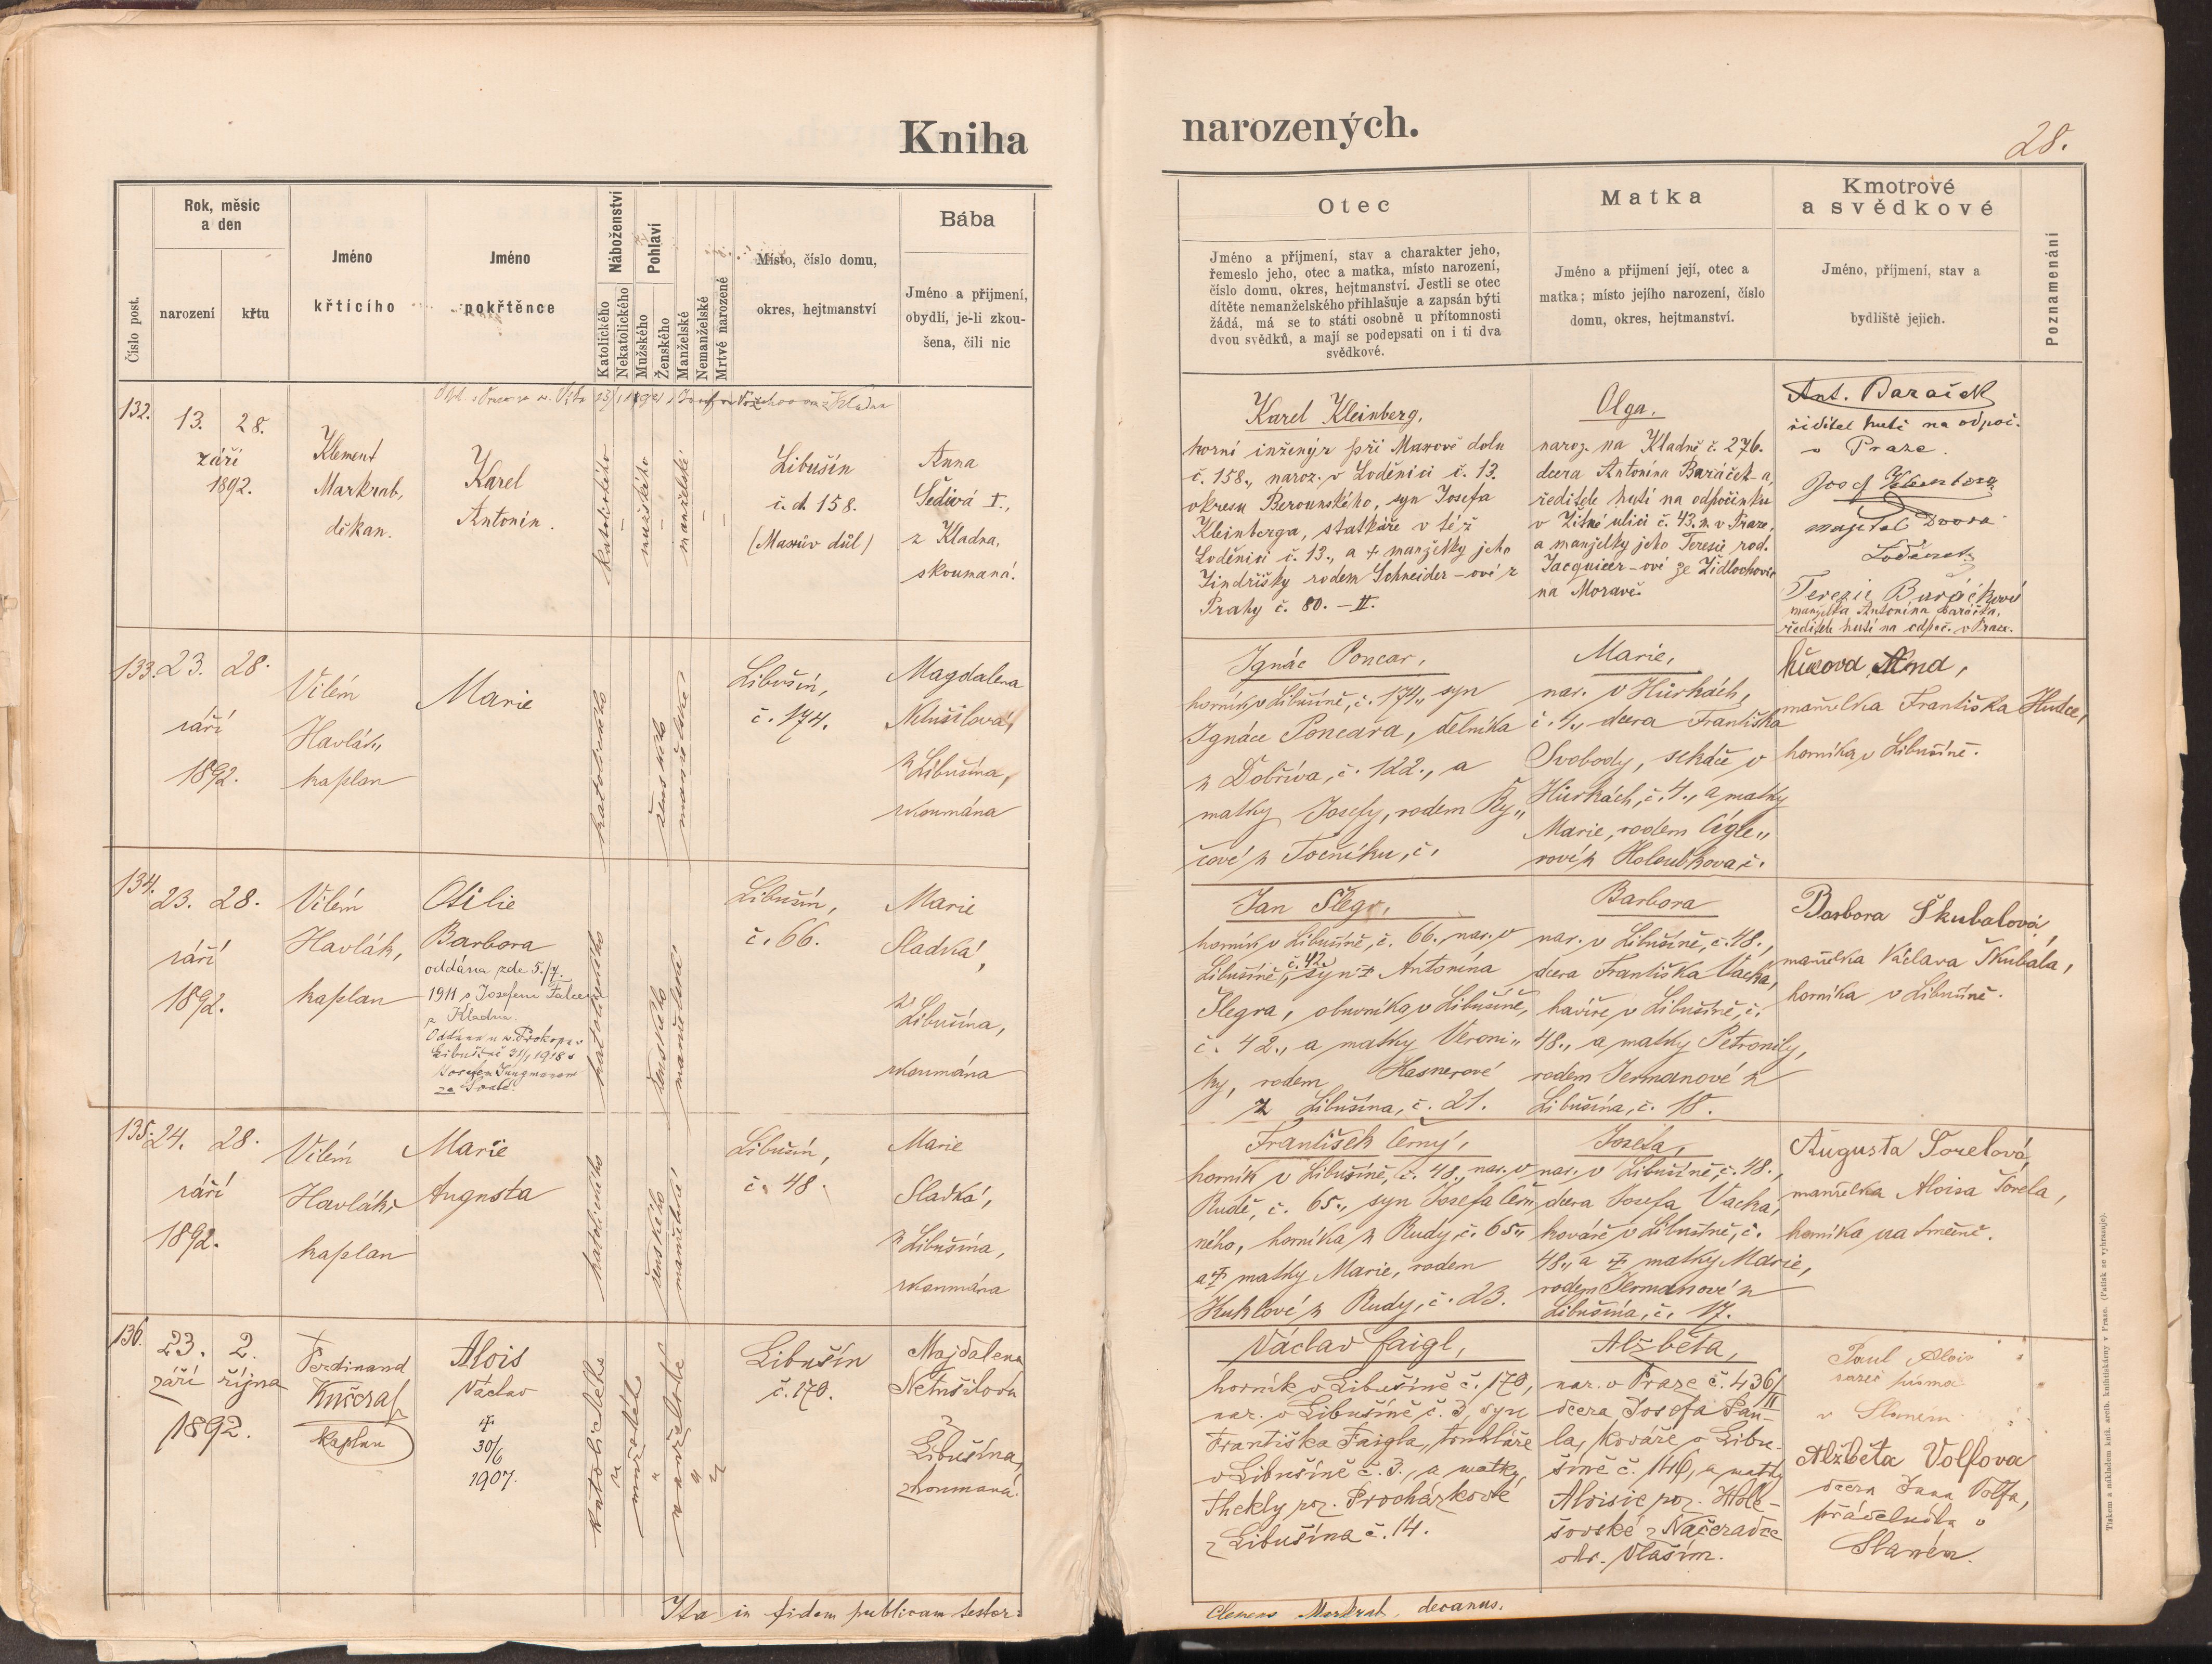 Kniha
narozených.
28.
Číslo post.
Rok, měsíc
a den
narození
křtu
Jméno
křtícího
Jméno
pokřtěnce
Náboženství
Katolického
Nekatolického
Pohlaví
Mužského
Ženského
Manželské
Nemanželské
Mrtvé narozené
Místo, číslo domu,
okres, hejtmanství
Bába
Jméno a přijmení,
obydlí, je-li zkou-
šena, čili nic
Otec
Jméno a příjmení, stav a charakter jeho,
řemeslo jeho, otec a matka, místo narození,
číslo domu, okres, hejtmanství. Jestli se otec
dítěte nemanželského přihlašuje a zapsán býti
žádá, má se to státi osobně u přítomnosti
dvou svědků, a mají se podepsati on i ti dva
svědkové.
Matka
Jméno a přijmení její, otec a
matka; místo jejího narození, číslo
domu, okres, hejtmanství.
Kmotrové
a svědkové
Jméno, příjmení, stav a
bydliště jejich.
Poznamenání
132.
13. 28.
září
1892.
Klement
Markrab,
děkan.
Karel
Antonín.
katolického
mužského
manželské
Libušín
č. d. 158.
(Maxův důl)
Anna
Šedivá I.,
z Kladna,
skoumaná.
Karel Kleinberg,
horní inženýr při Maxově dolu
č. 158., naroz. v Loděnici č. 13.
okresu Berounského, syn Josefa
Kleinberga, statkáře v též
Loděnici č. 13., a + manželky jeho
Jindřišky rodem Schneider-ové z
Prahy č. 80. – II.
Olga,
naroz. na Kladně č. 276.
dcera Antonína Baráček-a,
ředitele hutí na odpočinku
v Žitné ulici č. 43. n. v Praze,
a manželky jeho Teresie rod.
Jacquieer-ové ze Židlochovic
na Moravě.
Ant. Baraček
řiditel hutě na odpoč.
v Praze.
Josef Kleinberg
majitel dvora
Terezie Baráčková
manželka Antonína Baráčka,
ředitele hutí na odpoč. v Praze.
133.
23. 28.
září
1892.
Vilém
Havlák,,
kaplan
Marie
katolického
ženského
manželské
Libušín,
č. 174.
Magdalena
Netušilová,
z Libušína,
zkoumána
Ignác Poncar,
horník v Libušíně, č. 174,, syn
Ignáce Poncara, dělníka
z Dobříva, č. 122., a
matky Josefy, rodem Ry,,
čové z Točníku, č.
Marie,
nar. v Hůrkách,
č. 4,, dcera Františka
Svobody, sekáče v
Hůrkách, č. 4., a matky
Marie, rodem Cígle,,
rové z Holoubkova, č.
manželka Františka
horníka v Libušíně.
134.
23. 28.
září
1892.
Vilém
Havlák,
kaplan
Otilie
Barbora
oddána zde 5./7.
1911 s Josefem
z Kladna.
Oddána u sv. Prokopa v
Libušíně 31/1 1918 s
katolického
ženského
manželské
Libušín,
č. 66.
Marie
Sladká,
z Libušína,
zkoumána
Jan Šlegr,
horník v Libušíně, č. 66., nar. v
Libušíně, č. 42., syn + Antonína
Šlegra, obuvníka v Libušíně,
č. 42., a matky Veroni,,
ky, rodem Hasnerové
z Libušína, č. 21.
Barbora
nar. v Libušíně, č. 48.,
dcera Františka Vacka,
havíře v Libušíně, č.
48., a matky Petronily,
rodem Jermanové z
Libušína, č. 18.
Barbora Škubalová,
manželka Václava Škubala,
horníka v Libušíně.
135.
24. 28.
září
1892.
Vilém
Havlák,
kaplan
Marie
Augusta
katolického
ženského
manželské
Libušín,
č. 48.
Marie
Sladká,
z Libušína,
zkoumána
František Černý,
horník v Libušíně, č. 48., nar. v
Rudě, č. 65., syn Josefa Čer
ného, horníka z Rudy, č. 65,,
a + matky Marie, rodem
Kuklové z Rudy, č. 23.
Josefa,
nar. v Libušíně, č. 48.,
dcera Josefa Vacka,
kováře v Libušíně, č.
48., a + matky Marie,
rodem Jermanové z
Libušína, č. 17.
Augusta Torelová
manželka Aloisa Torela,
horníka na Smečně.
136.
23. 2.
září října
1892.
Ferdinand
Kučera
kaplan
Alois
Václav
+
30/6
1907.
katolického
mužského
manželské
Libušín
č. 170.
Majdalena
Netušilova
z
Libušína,
zkoumaná.
Václav Faigl,
horník v Libušíně č. 170,
nar. v Libušíně č. 3, syn
Františka Faigla, truhláře
v Libušíně č. 3., a matky
Thekly roz. Procházkové
z Libušína č. 14.
Alžběta,
nar. v Praze č. 436/II
dcera Josefa Pau-
la, kováře v Libu-
šíně č. 146, a matky
Aloisie roz. Hole-
šovské z Načeradce
okr. Vlašim.
Paul Alois
v Slaném
Alžběta Volfova
dcera Jana Volfa,
v
Slaném.
Ita in fidem publicam testor:
Clemens Markrab, decanus.
Tiskem a nákladem kníž. arcib. knihtiskárny v Praze. (Patisk se vyhrazuje).